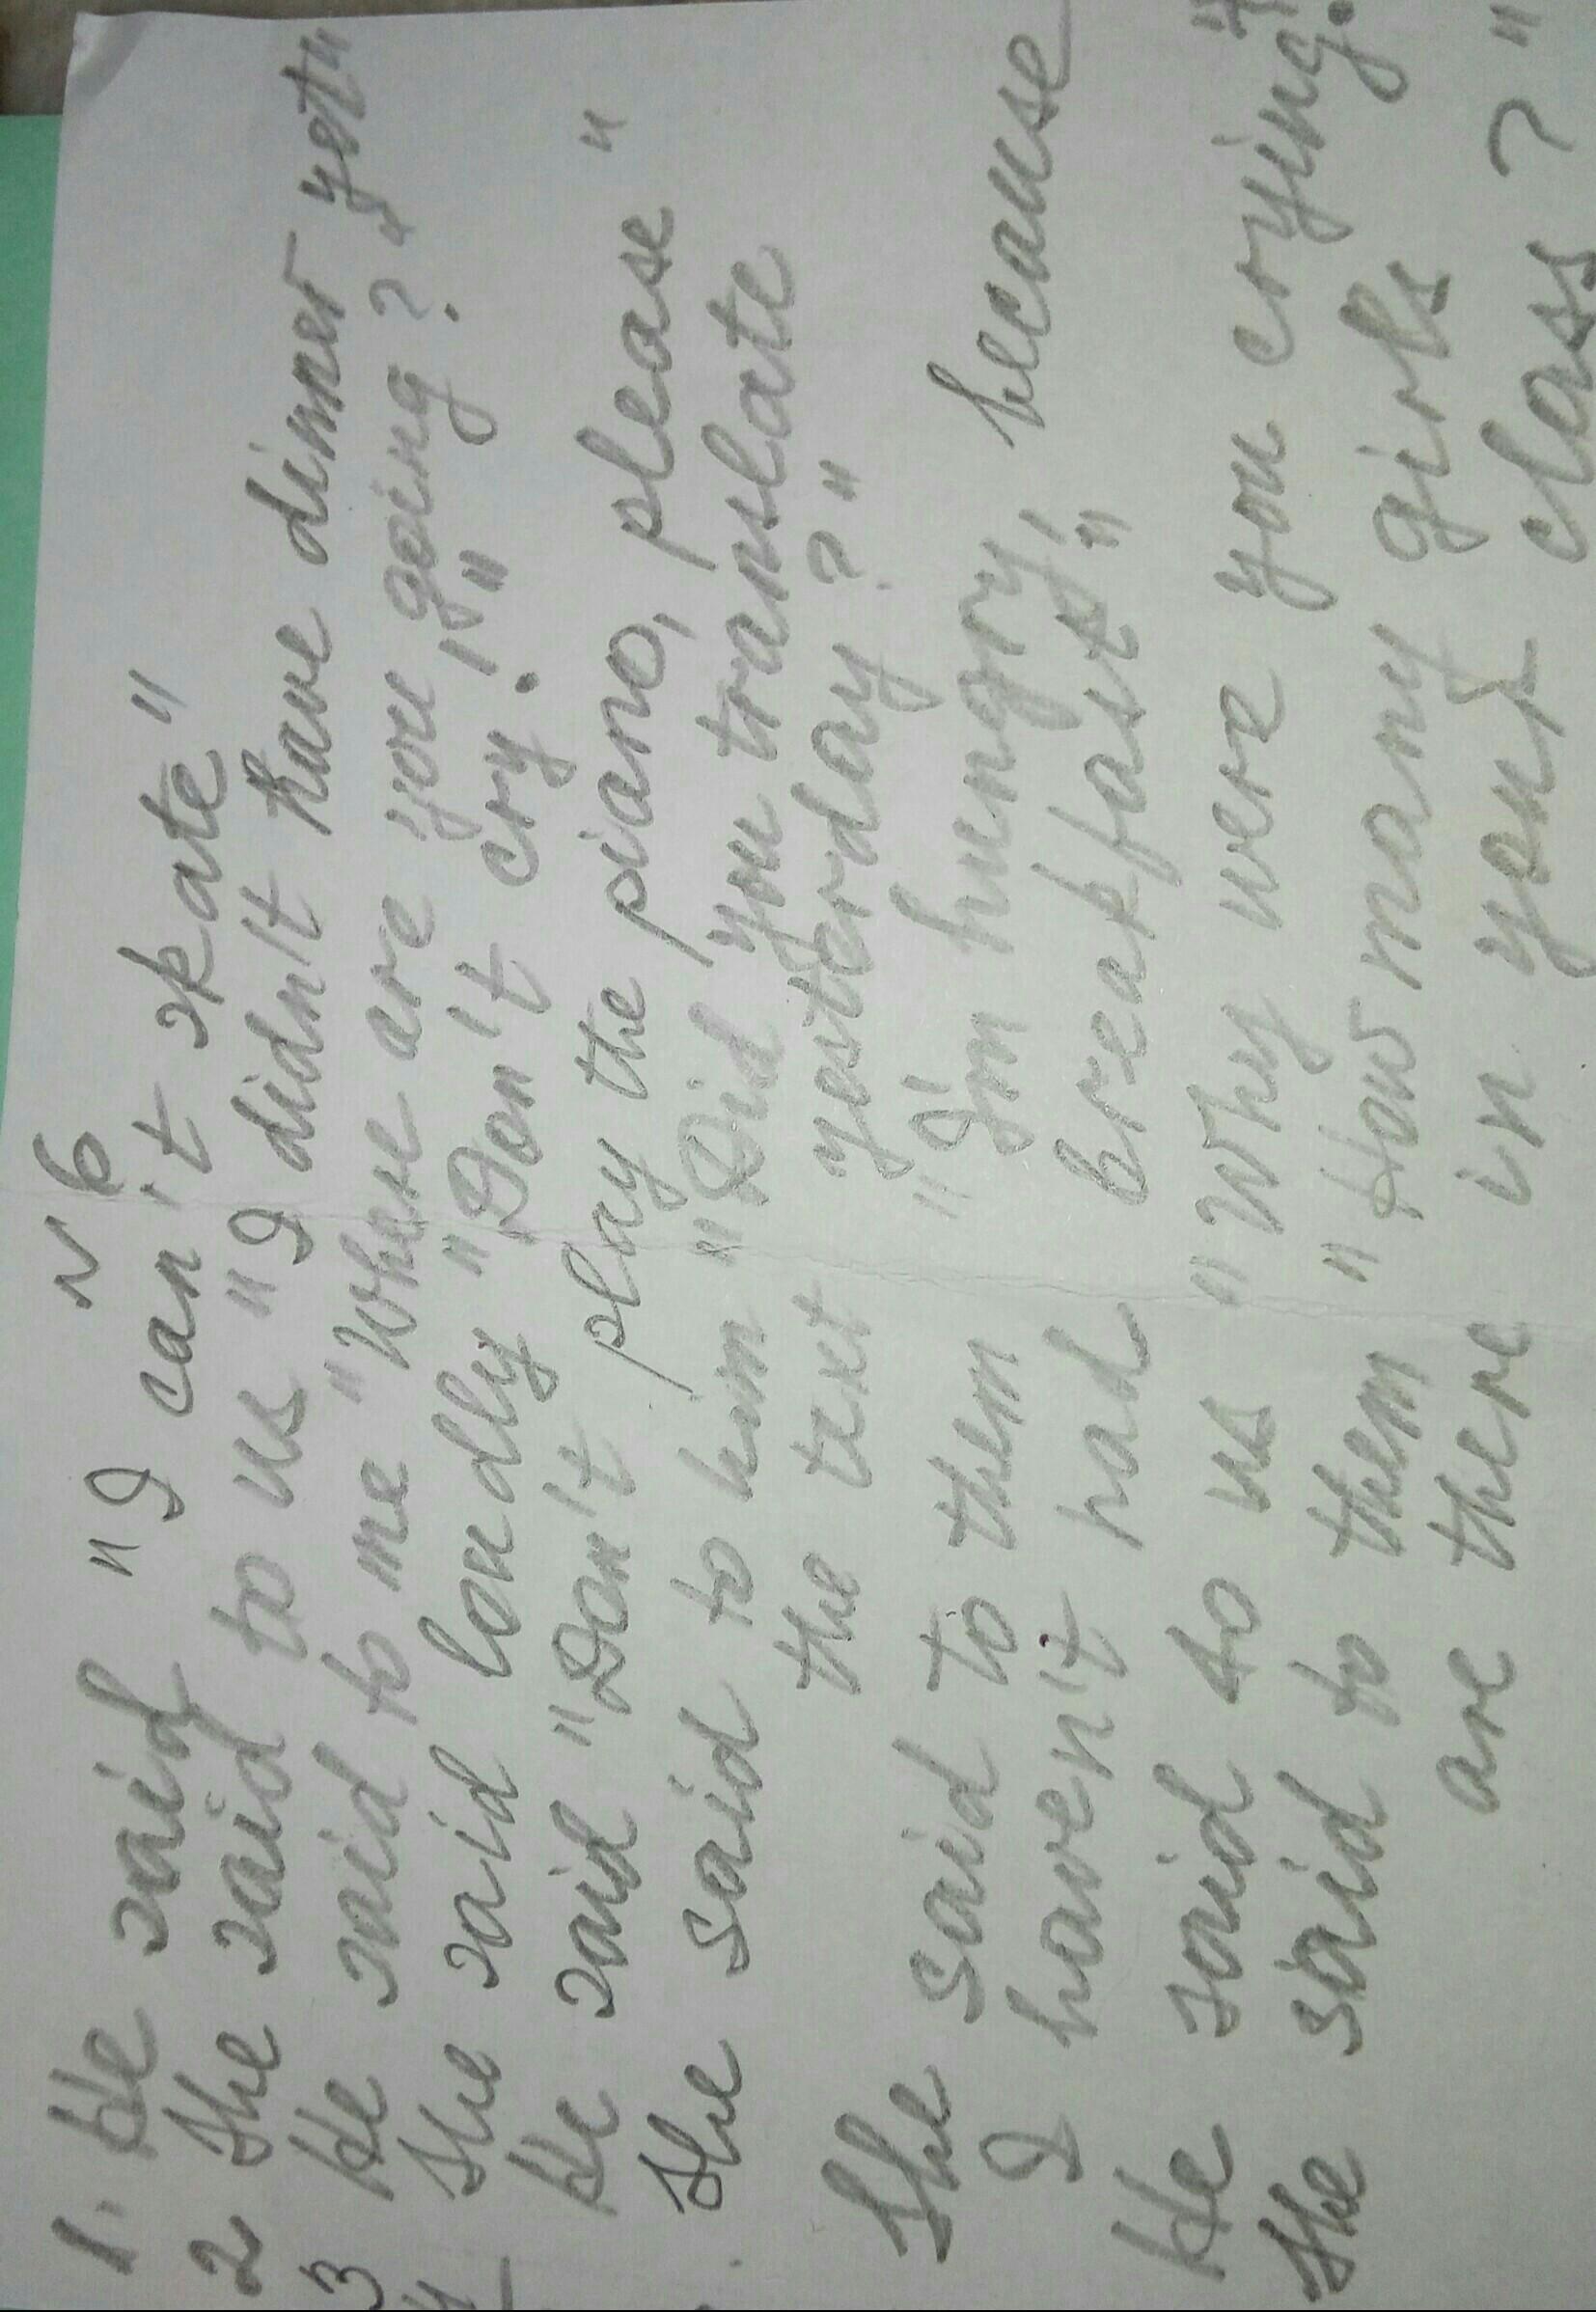 N 6
1. He said "I can't skate"
2 She said to us "I didn't have dinner yet"
3 He said to me "Where are you going?"
4 She said loudly "Don't cry!"
He said "Don't play the piano, please"
She said to him "Did you translate
the text yesterday?"
She said to them "I'm hungry, because
I haven't had breakfast"
He said to us "Why were you crying?"
She said to them "How many girls
are there in your class?"